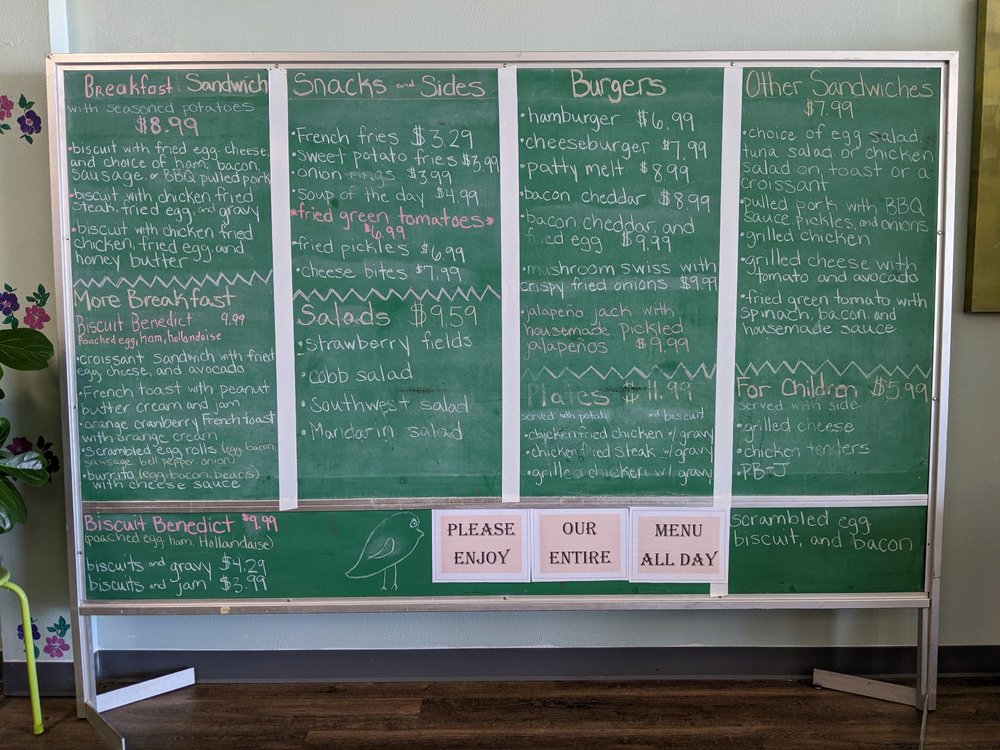 Breakfast Sandwich
with seasoned potatoes
$8.99
•biscuit with fried egg, cheese,
and choice of ham, bacon,
sausage, or BBQ pulled pork
•biscuit with chicken fried
steak, fried egg, and gravy
•biscuit with chicken fried
chicken, fried egg, and
honey butter
More Breakfast
Biscuit Benedict 9.99
Poached egg, ham, hollandaise
•croissant sandwich with fried
egg, cheese, and avocado
•French toast with peanut
butter cream and jam
•orange cranberry French toast
with orange cream
•scrambled egg rolls (egg, bacon,
sausage, bell pepper, onion)
•burrito (egg, bacon, beans)
with cheese sauce
Biscuit Benedict $9.99
(poached egg, ham, Hollandaise)
biscuits and gravy $4.29
biscuits and jam $3.99
Snacks and Sides
•French fries $3.29
•sweet potato fries $3.99
•onion rings $3.99
•soup of the day $4.99
*fried green tomatoes*
$6.99
•fried pickles $6.99
•cheese bites $7.99
Salads $9.59
•strawberry fields
•cobb salad
•Southwest salad
•Mandarin salad
Burgers
•hamburger $6.99
•cheeseburger $7.99
•patty melt $8.99
•bacon cheddar $8.99
•bacon cheddar, and
fried egg $9.99
•mushroom swiss with
crispy fried onions $9.99
•jalapeño jack with
housemade pickled
jalapeños $9.99
Plates $11.99
served with potato and biscuit
•chicken fried chicken w/ gravy
•chicken fried steak w/ gravy
•grilled chicken w/ gravy
PLEASE
ENJOY
OUR
ENTIRE
MENU
ALL DAY
Other Sandwiches
$7.99
•choice of egg salad,
tuna salad, or chicken
salad on toast or a
croissant
•pulled pork with BBQ
sauce, pickles, and onions
•grilled chicken
•grilled cheese with
tomato and avocado
•fried green tomato with
spinach, bacon, and
housemade sauce
For Children $5.99
served with side
•grilled cheese
•chicken tenders
•PB-J
scrambled egg
biscuit, and bacon